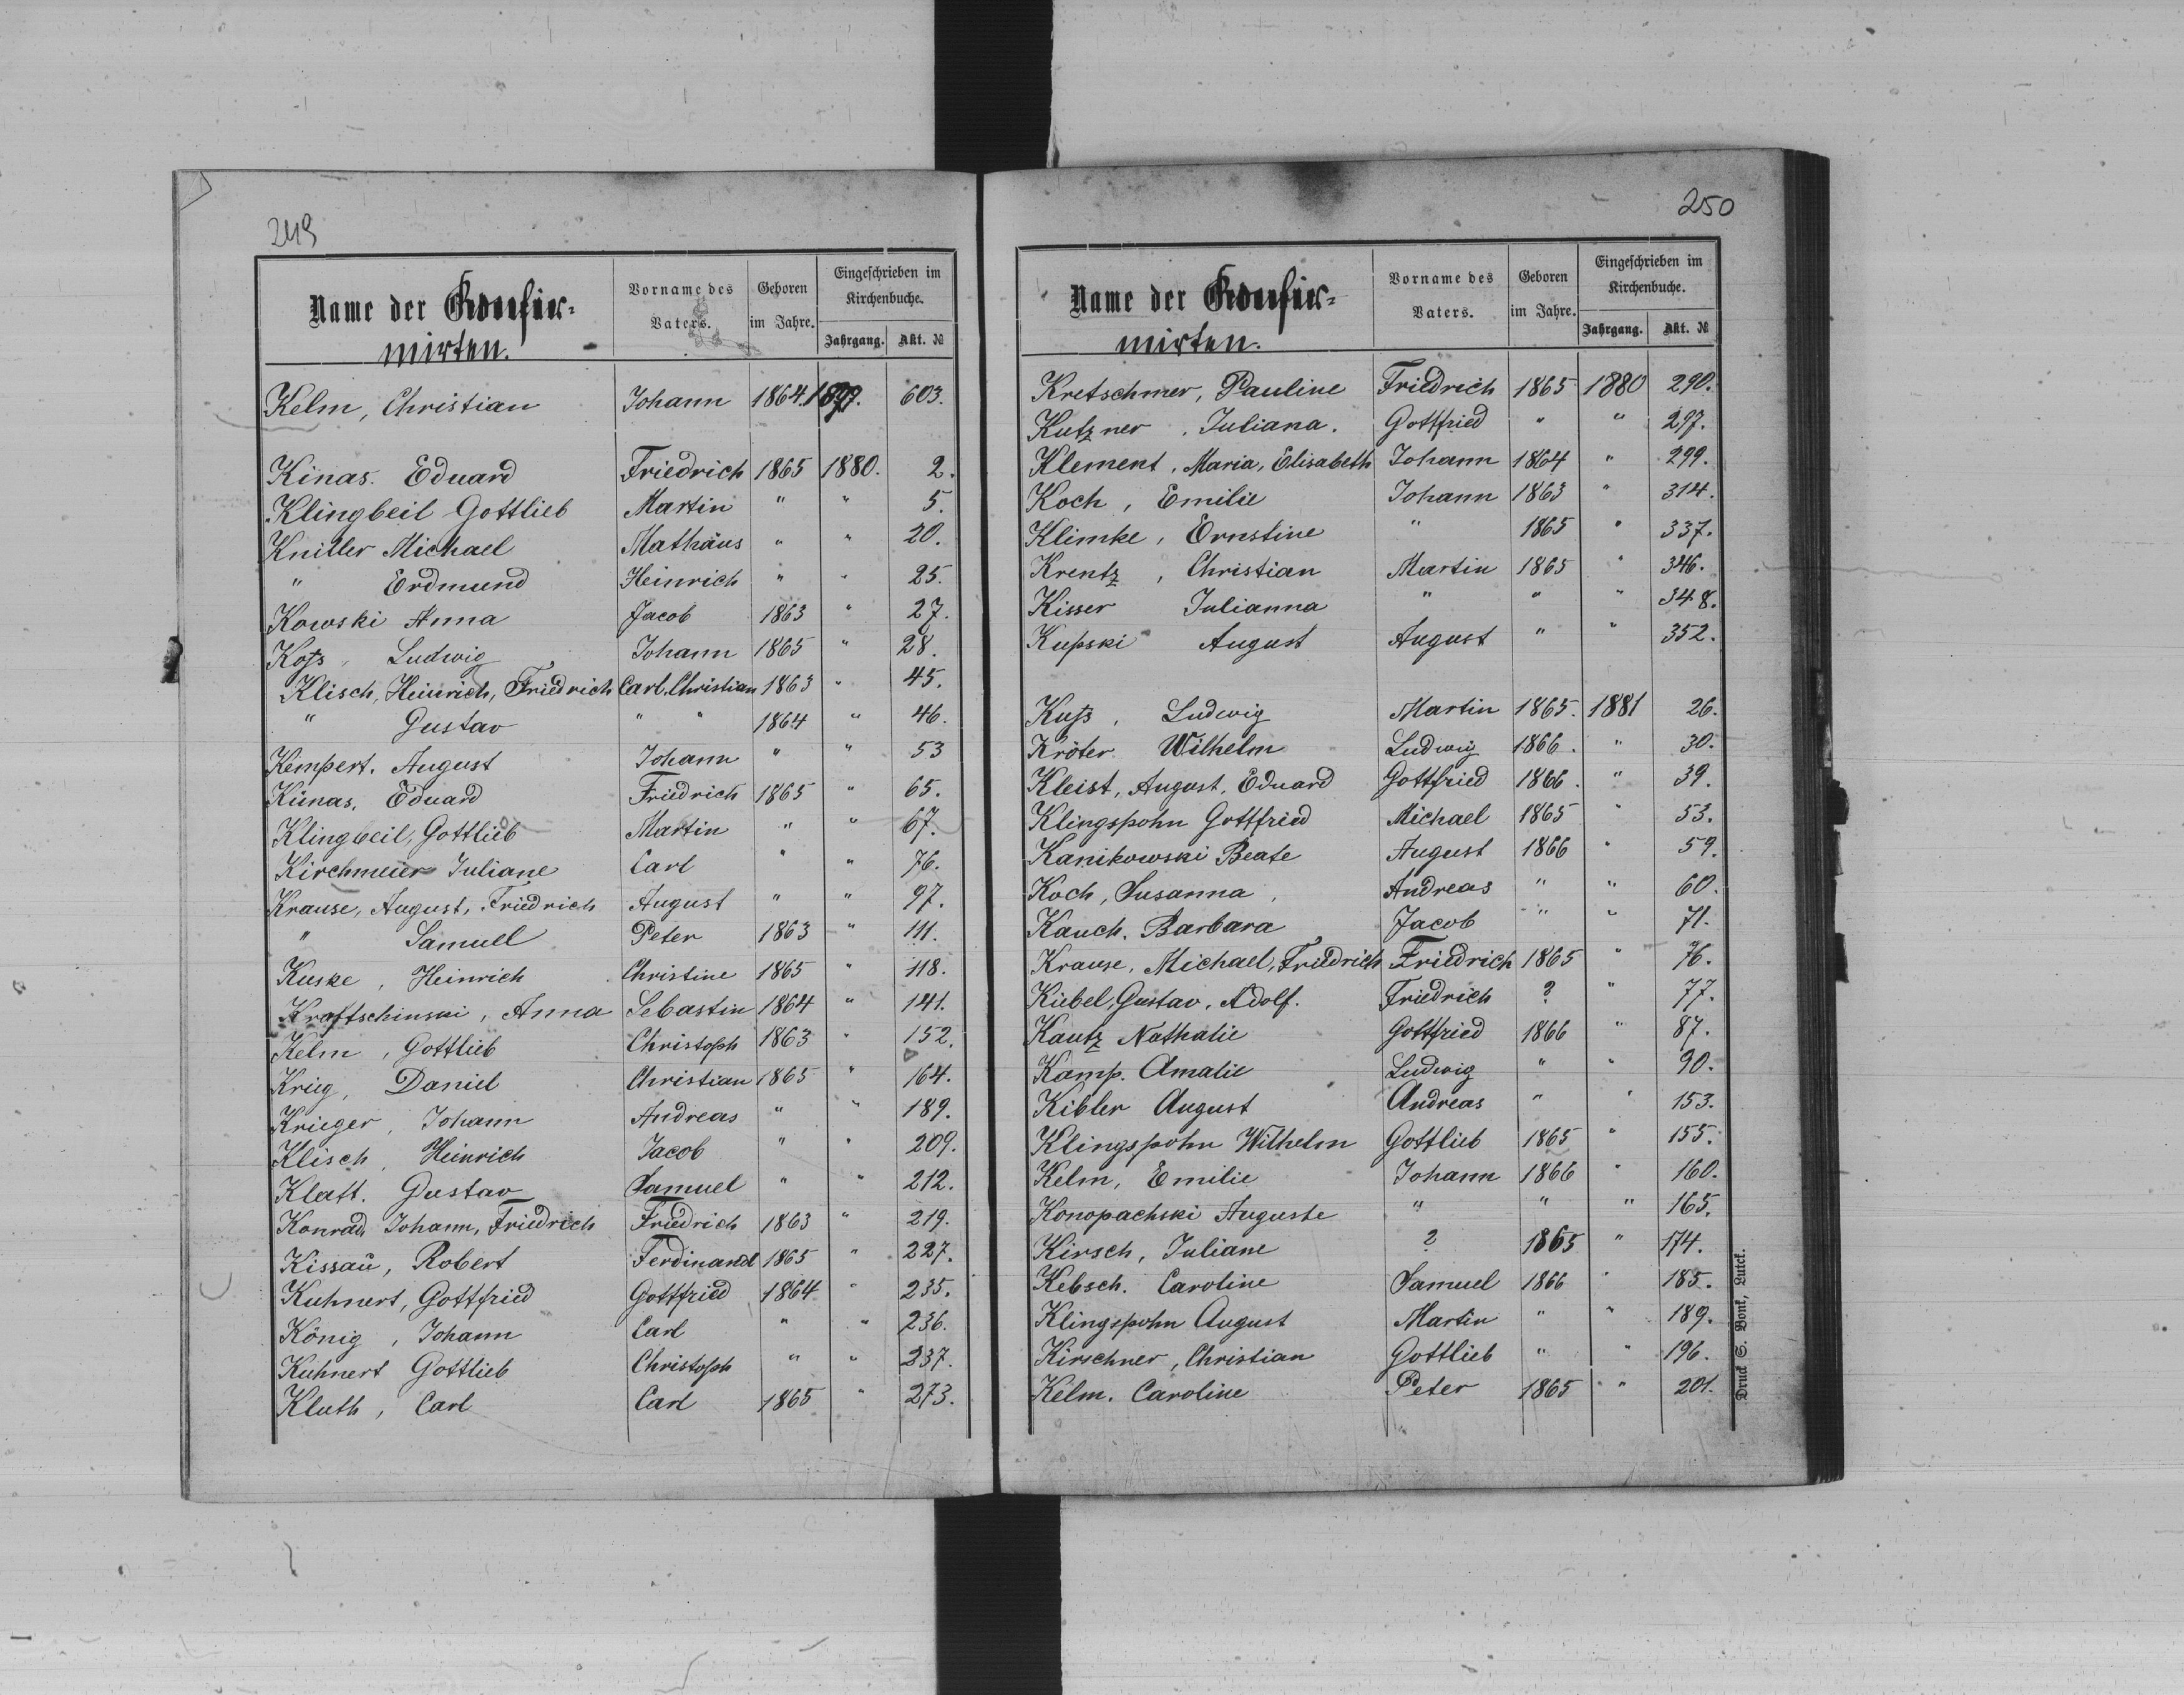 249
Name der Konfir-
mirten.
Vorname des
Vaters.
Geboren
im Jahre.
Eingeschrieben im
Kirchenbuche.
Jahrgang. Akt. №
Kelm, Christian Johann 1864. 1879. 603.
Kinas. Eduard Friedrich 1865 1880. 2.
Klingbeil Gottlieb Martin " " 5.
Knitter Michael Mathäus " " 20.
" Erdmund Heinrich " " 25.
Kowski Anna Jacob 1863 " 27.
Koſs, Ludwig Johann 1865 " 28.
Klisch, Heinrich, Friedrich Carl, Christian 1863 " 45.
" Gustav " " 1864 " 46.
Kempert. August Johann " " 53
Künas, Eduard Friedrich 1865 " 65.
Klingbeil, Gottlieb Martin " " 67.
Kirchmeier Juliane Carl " " 76.
Krause, August, Friedrich August " " 97.
" Samuel Peter 1863 " 111.
Kuske, Heinrich Christine 1865 " 118.
Kraftschinski, Anna Sebastin 1864 " 141.
Kelm, Gottlieb Christoph 1863 " 152.
Krieg, Daniel Christian 1865 " 164.
Krieger, Johann Andreas " " 189.
Klisch, Heinrich Jacob " " 209.
Klatt. Gustav Samuel " " 212.
Konrad, Johann, Friedrich Friedrich 1863 " 219.
Kissaŭ, Robert Ferdinand 1865 " 227.
Kuhnert, Gottfried Gottfried 1864 " 235.
König, Johann Carl " " 236.
Kuhnert Gottlieb Christoph " " 237.
Kluth, Carl Carl 1865 " 273.
250
Name der Konfir-
mirten.
Vorname des
Vaters.
Geboren
im Jahre.
Eingeschrieben im
Kirchenbuche.
Jahrgang. Akt. №
Kretschmer, Pauline Friedrich 1865 1880 290.
Kutzner, Juliana. Gottfried " " 297.
Klement, Maria, Elisabeth Johann 1864 " 299.
Koch, Emilie Johann 1863 " 314.
Klimke, Ernstine " 1865 " 337.
Krentz, Christian Martin 1865 " 346.
Kisser Julianna " " " 348.
Kupski August August " " 352.
Kuſs, Ludwig Martin 1865. 1881 26.
Kröter. Wilhelm Ludwig 1866. " 30.
Kleist, August, Eduard Gottfried 1866. " 39.
Klingspohn Gottfried Michael 1865 " 53.
Kanikowski Beate August 1866 " 59.
Koch, Susanna, Andreas " " 60.
Kauch. Barbara Jacob " " 71.
Krause, Michael, Friedrich Friedrich 1865 " 76.
Kiebel, Gustav, Adolf. Friedrich ? " 77.
Kautz Nathalie Gottfried 1866 " 87.
Kamp. Amalie Ludwig " " 90.
Kibler August Andreas " " 153.
Klingspohn Wilhelm Gottlieb 1865 " 155.
Kelm, Emilie Johann 1866 " 160.
Konopachski Auguste " " " 165.
Kirsch, Juliane ? 1865 " 174.
Kebsch. Caroline Samuel 1866 " 185.
Klingspohn August Martin " " 189.
Kirschner, Christian Gottlieb " " 196.
Kelm. Caroline Peter 1865 " 201.
Druck S. Bonk, Lutck.